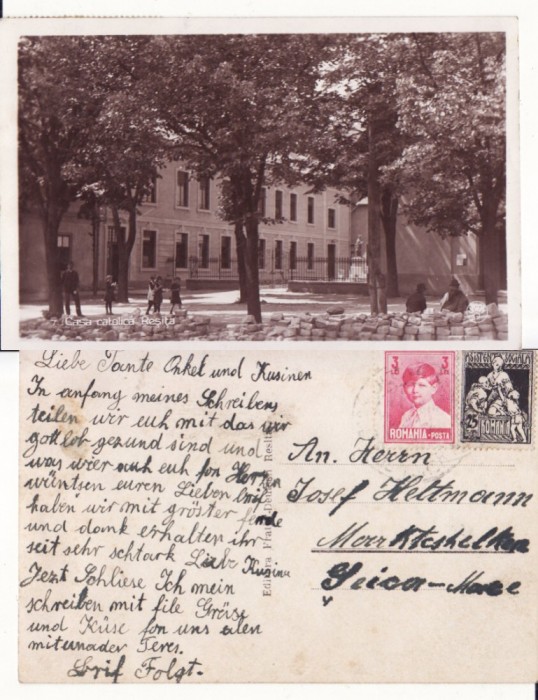 7. Casa catolica Resita
Liebe Tante Onkel und Kusinen
In anfang meines Schreibens
teilen wir euh mit das wir
gottlob gezund sind und
was wier auh euh fon Herzen
wüntsen euren Lieben brif
haben wir mit gröster feride
und dank erhalten ihr
seit sehr schtark Liebe Kusina
Jezt Schliese Ich mein
schreiben mit file Gräse
und Küse fon uns alen
mitunader Teres.
Brif Folgt.
Editura
Resita
3 3
ROMANIA-POSTA
25
ROMINIA
An. Herrn
Josef Heltmann
Marktschelken
Seica-Mare